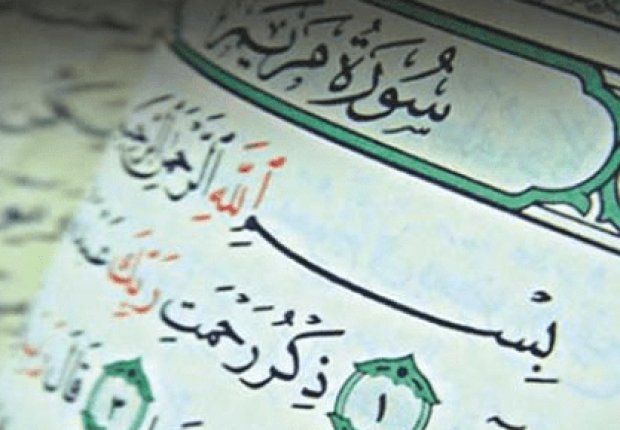 سُورَةُ مَرْيَمَ
بِسْمِ اللَّهِ الرَّحْمَٰنِ الرَّحِيمِ
١ ذِكْرُ رَحْمَتِ رَبِّكَ
٣ قَالَ رَبِّ